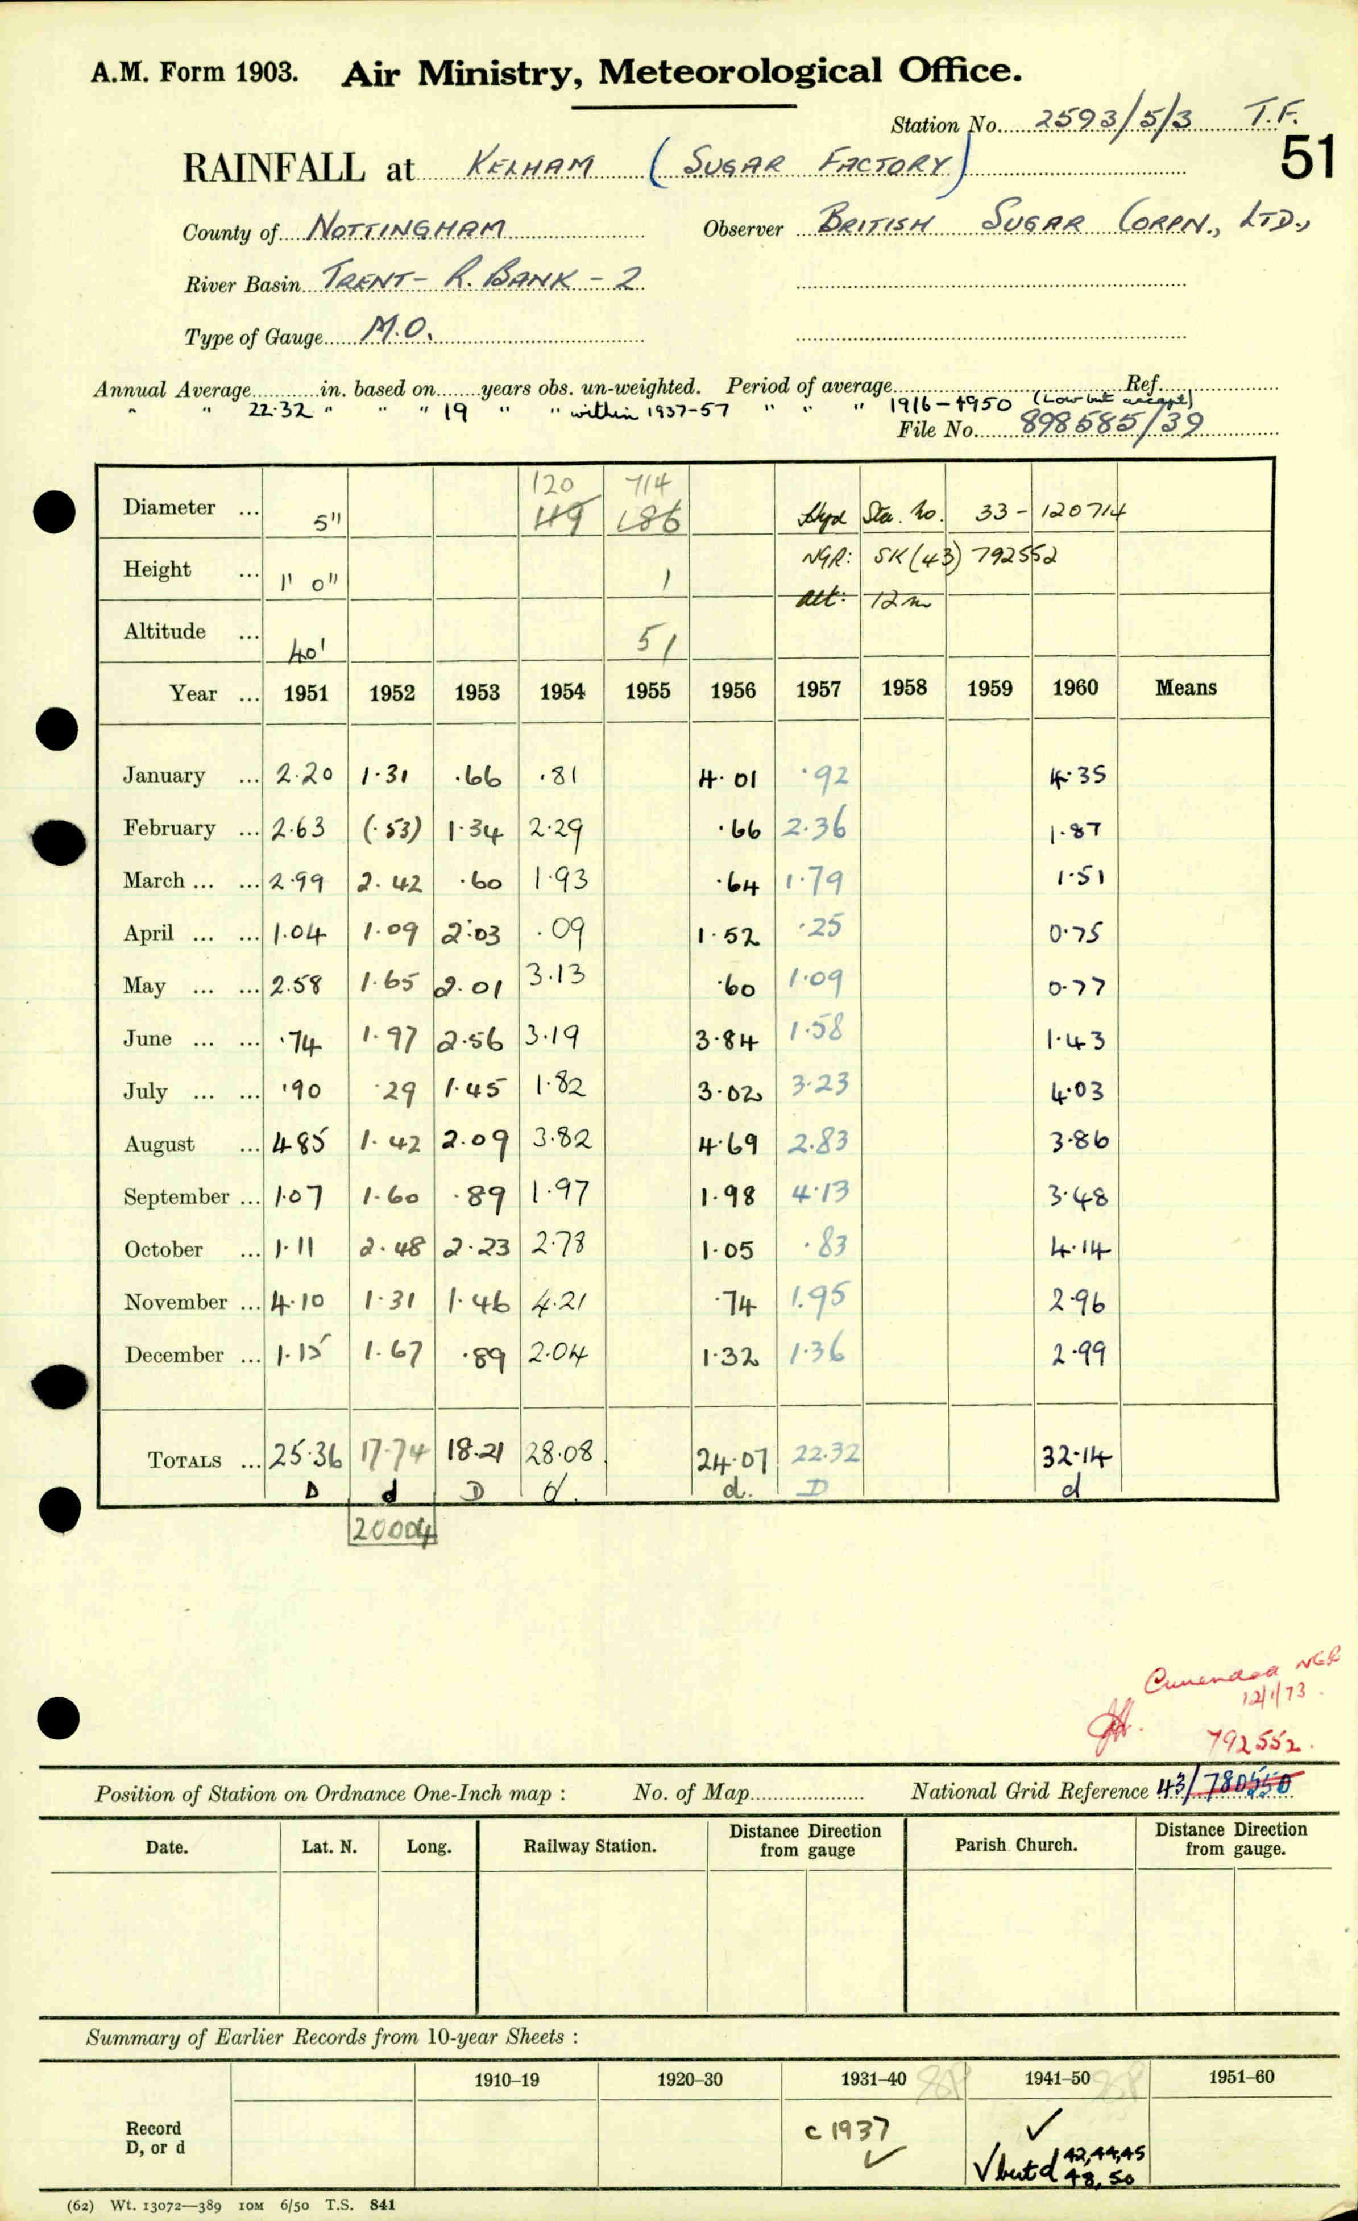 A.M. Form 1903. Air Ministry, Meteorological Office.
Station No. 2593/5/3 T.F.
51
RAINFALL at KELHAM (SUGAR FACTORY)
County of NOTTINGHAM Observer BRITISH SUGAR CORPN., LTD.,
River Basin TRENT - R. BANK - 2
Type of Gauge M.O.
Annual Average in. based on years obs. un-weighted. Period of average Ref.
" " 22.32 " " " 19 " " within 1937-57 " " " 1916-1950 (Low but accept)
File No. 898585/39
120 714
Diameter ... 5" 119 186 Hyd Sta. No. 33-120714
NGR: SK(43) 792552
Height ... 1' 0" 1
Alt: 12m
Altitude ... 40' 51
Year ... 1951 1952 1953 1954 1955 1956 1957 1958 1959 1960 Means
January ... 2.20 1.31 .66 .81 4.01 .92 4.35
February ... 2.63 (.53) 1.34 2.29 .66 2.36 1.87
March ... ... 2.99 2.42 .60 1.93 .64 1.79 1.51
April ... ... 1.04 1.09 2.03 .09 1.52 .25 0.75
May ... ... 2.58 1.65 2.01 3.13 .60 1.09 0.77
June ... ... .74 1.97 2.56 3.19 3.84 1.58 1.43
July ... ... .90 .29 1.45 1.82 3.02 3.23 4.03
August ... 4.85 1.42 2.09 3.82 4.69 2.83 3.86
September ... 1.07 1.60 .89 1.97 1.98 4.13 3.48
October ... 1.11 2.48 2.23 2.78 1.05 .83 4.14
November ... 4.10 1.31 1.46 4.21 .74 1.95 2.96
December ... 1.15 1.67 .89 2.04 1.32 1.36 2.99
TOTALS ... 25.36 17.74 18.21 28.08 24.07 22.32 32.14
D d D d. d. D d
20004
NGR
12/1/73.
792552.
Position of Station on Ordnance One-Inch map : No. of Map National Grid Reference 43/780550
Date. Lat. N. Long. Railway Station. Distance from gauge Direction Parish Church. Distance from gauge. Direction
Summary of Earlier Records from 10-year Sheets :
1910–19 1920–30 1931–40 1941–50 1951–60
Record D, or d c 1937 ✓ ✓
✓ but d 42,44,45
48,50
(62) Wt. 13072—389 10M 6/50 T.S. 841